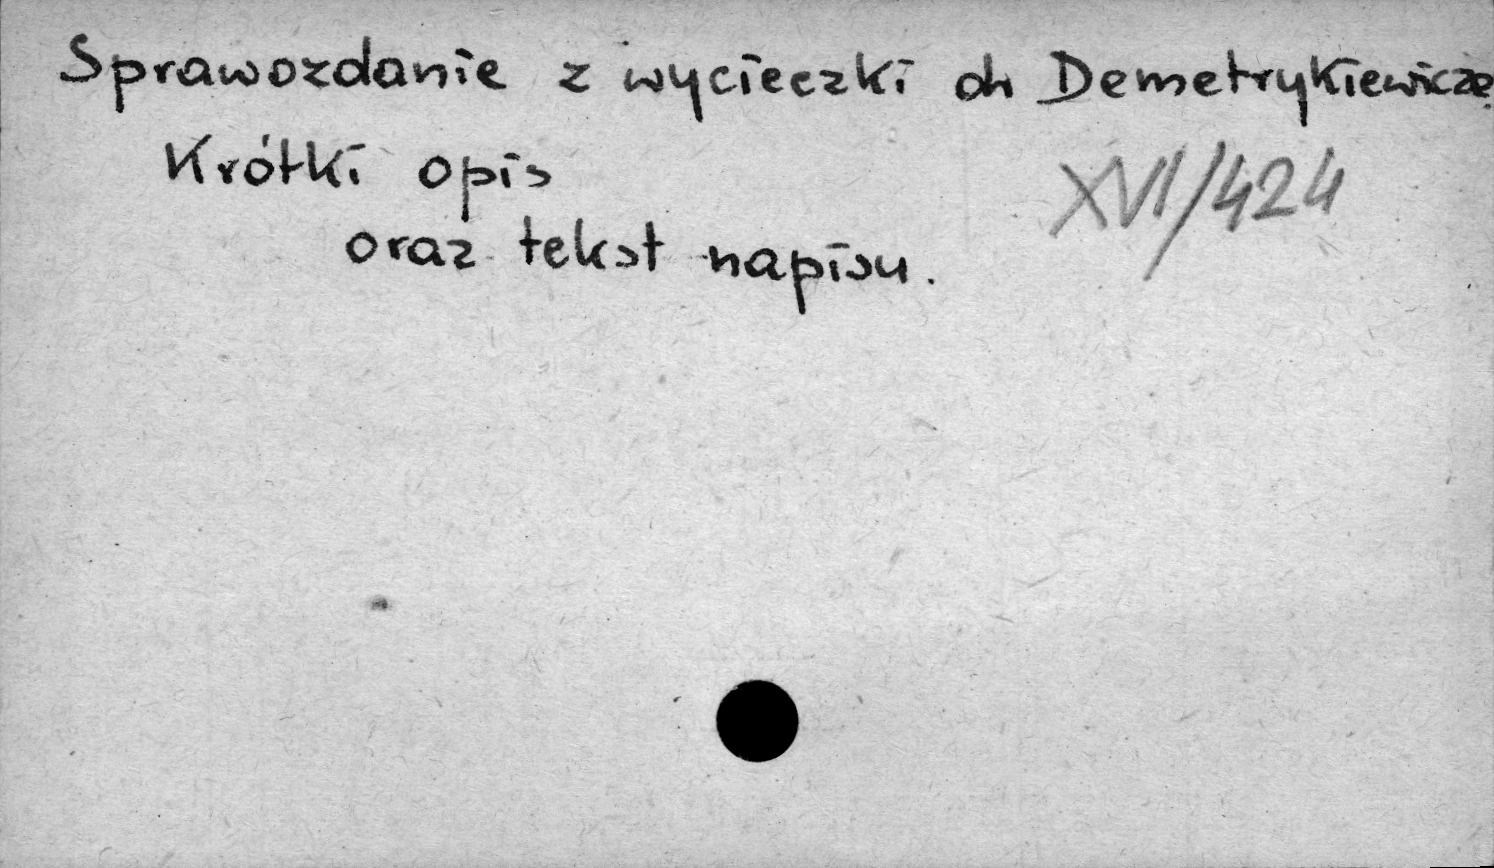 Sprawozdanie z wycieczki dr Demetrykiewicza
Krótki opis
XVI/424
oraz tekst napisu.